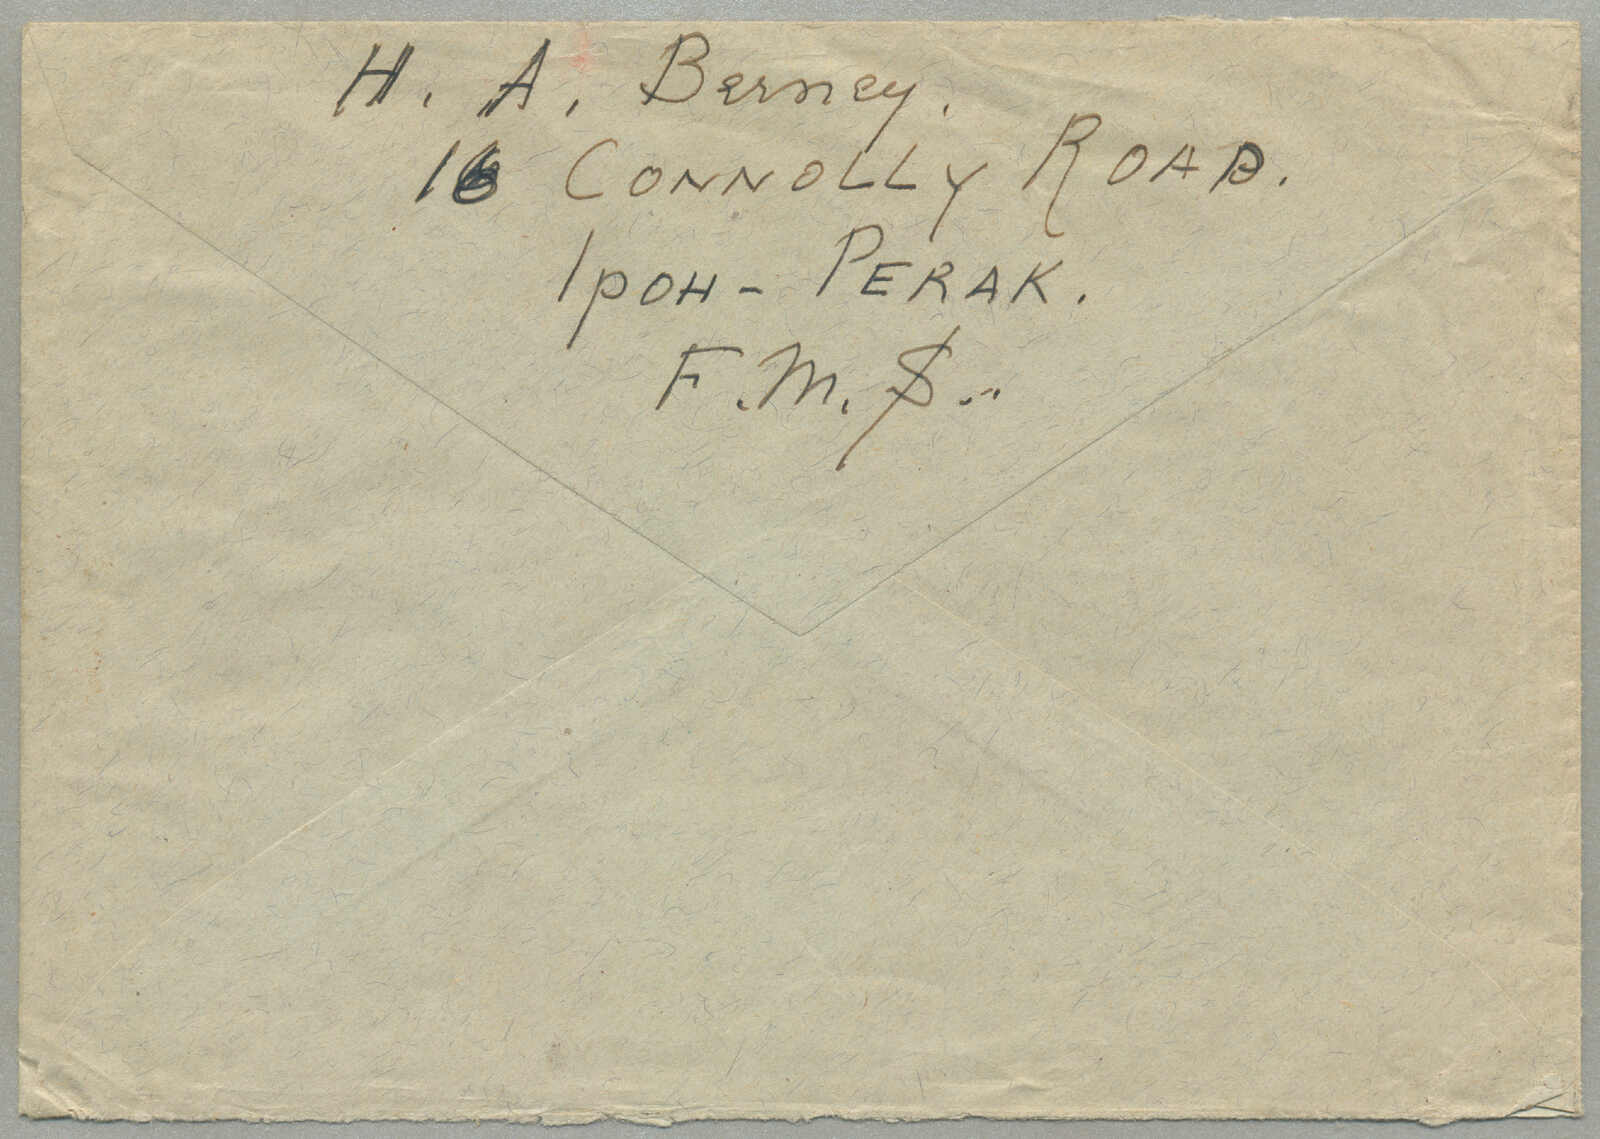 H. A. Berney.
16 CONNOLLY ROAD.
IPOH - PERAK.
F.M.S..